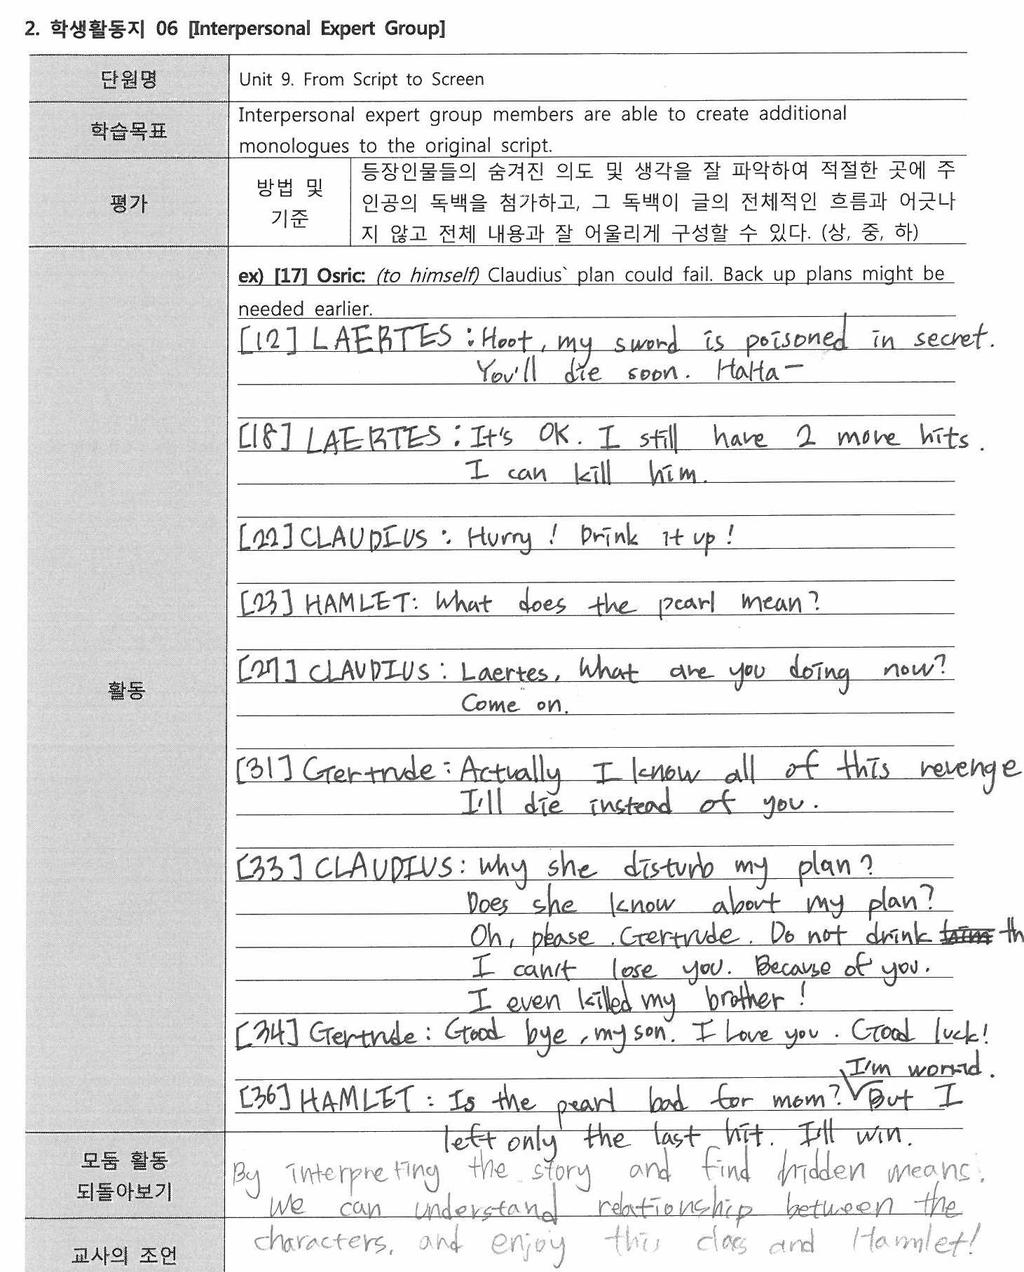 2. 학생활동지 06 [Interpersonal Expert Group]
단원명
Unit 9. From Script to Screen
학습목표
Interpersonal expert group members are able to create additional
monologues to the original script.
평가
방법 및
기준
등장인물들의 숨겨진 의도 및 생각을 잘 파악하여 적절한 곳에 주
인공의 독백을 첨가하고, 그 독백이 글의 전체적인 흐름과 어긋나
지 않고 전체 내용과 잘 어울리게 구성할 수 있다. (상, 중, 하)
활동
ex) [17] Osric: (to himself) Claudius` plan could fail. Back up plans might be
needed earlier.
[12] LAERTES : Hoot, my sword is poisoned in secret.
You'll die soon. HaHa—
[18] LAERTES : It's OK. I still have 2 more hits.
I can kill him.
[22] CLAUDIUS : Hurry! Drink it up!
[23] HAMLET: What does the pearl mean?
[27] CLAUDIUS : Laertes, What are you doing now?
Come on.
[31] Gertrude : Actually I know all of this revenge
I'll die instead of you.
[33] CLAUDIUS: Why she disturb my plan?
Does she know about my plan?
Oh, please. Gertrude. Do not drink th
I can't lose you. Because of you.
I even killed my brother!
[34] Gertrude : Good bye, my son. I Love you. Good luck!
I'm worrid.
[36] HAMLET : Is the pearl bad for mom? But I
left only the last hit. I'll win.
모둠 활동
되돌아보기
By interpreting the story and find hidden means.
We can understand relationship between the
characters, and enjoy this class and Hamlet!
교사의 조언